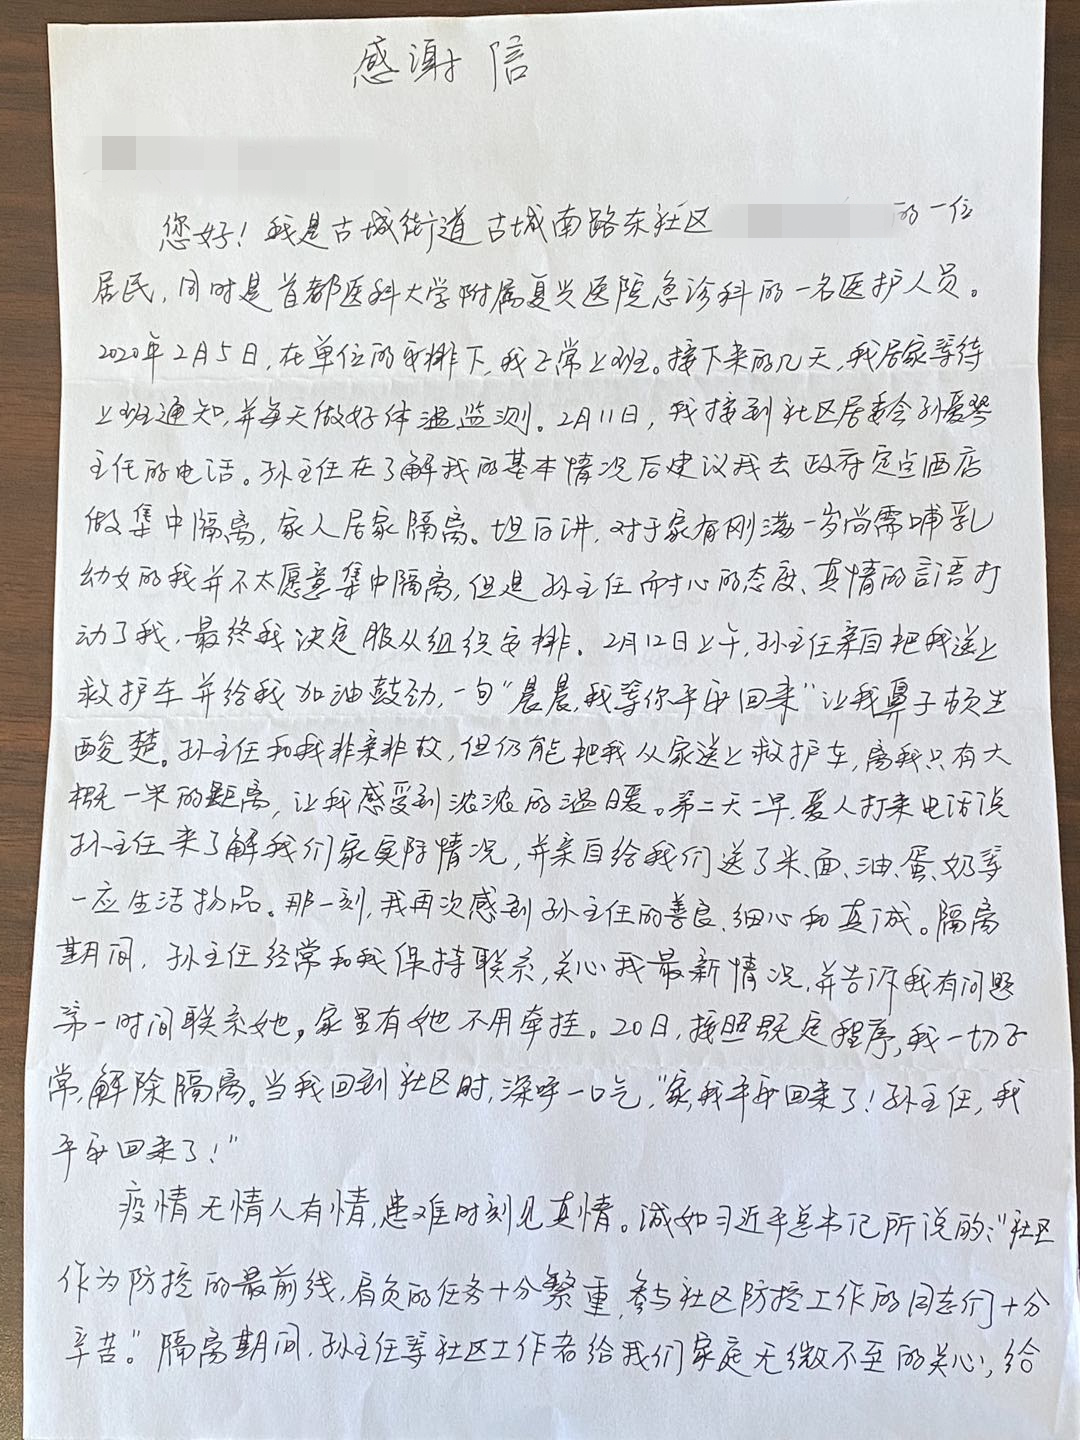 感谢信
您好！我是古城街道古城南路东社区的一位
居民，同时是首都医科大学附属复兴医院急诊科的一名医护人员。
2020年2月5日，在单位的安排下，我正常上班。接下来的几天，我居家等待
上班通知，并每天做好体温监测。2月11日，我接到社区居委会孙爱琴
主任的电话。孙主任在了解我的基本情况后建议我去政府定点酒店
做集中隔离，家人居家隔离。坦白讲，对于家有刚满一岁尚需哺乳
幼女的我并不太愿意集中隔离，但是孙主任耐心的态度、真情的言语打
动了我，最终我决定服从组织安排。2月12日上午，孙主任亲自把我送上
救护车并给我加油鼓劲，一句“晨晨，我等你平安回来”让我鼻子顿生
酸楚。孙主任和我非亲非故，但仍能把我从家送上救护车，离我只有大
概一米的距离，让我感受到浓浓的温暖。第二天一早，爱人打来电话说
孙主任来了解我们家实际情况，并亲自给我们送了米、面、油、蛋、奶等
一应生活物品。那一刻，我再次感到孙主任的善良、细心和真诚。隔离
期间，孙主任经常和我保持联系，关心我最新情况，并告诉我有问题
第一时间联系她，家里有她不用牵挂。20日，按照既定程序，我一切正
常，解除隔离。当我回到社区时，深呼一口气，“家，我平安回来了！孙主任，我
平安回来了！”
疫情无情人有情，患难时刻见真情。诚如习近平总书记所说的：“社区
作为防控的最前线，肩负的任务十分繁重，参与社区防控工作的同志们十分
辛苦。”隔离期间，孙主任等社区工作者给我们家庭无微不至的关心，给